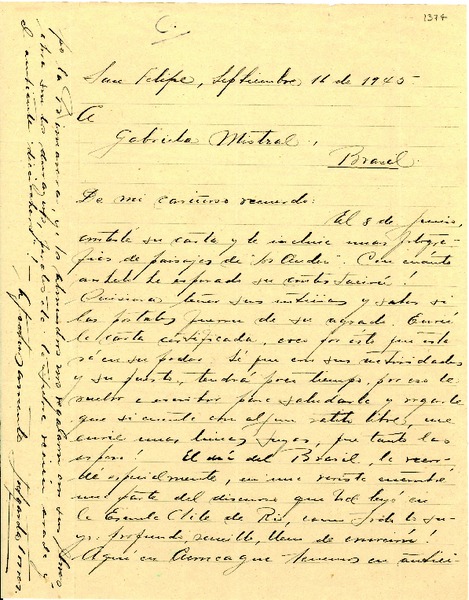 1374
San Felipe, Septiembre 16 de 1945.
A
Gabriela Mistral,
Brasil.
De mi cariñoso recuerdo:
El 8 de Junio,
contesté su carta y le incluí unas fotogra-
fías de paisajes de "Los Andes". Con cuánto
anhelo he esperado su contestación!
Quisiera tener sus noticias y saber si
las postales fueron de su agrado. Envié
la carta certificada, creo por esto que esté
ya en su poder. Sé que con sus actividades
y su puesto, tendrá poco tiempo, por eso le
vuelvo a escribir para saludarla y rogarle
que si cuenta con algún ratito libre, me
envíe unas líneas suyas, que tanto las
espero! El día del Brasil, la recor-
dé especialmente, en una revista encontré
una parte del discurso que Ud. leyó en
la Escuela Chile de Río, como todo lo su-
yo: profundo, sencillo, lleno de emoción!
Aquí en Aconcagua tenemos en antici-
po la Primavera, y los almendros nos regalaron con sus flores